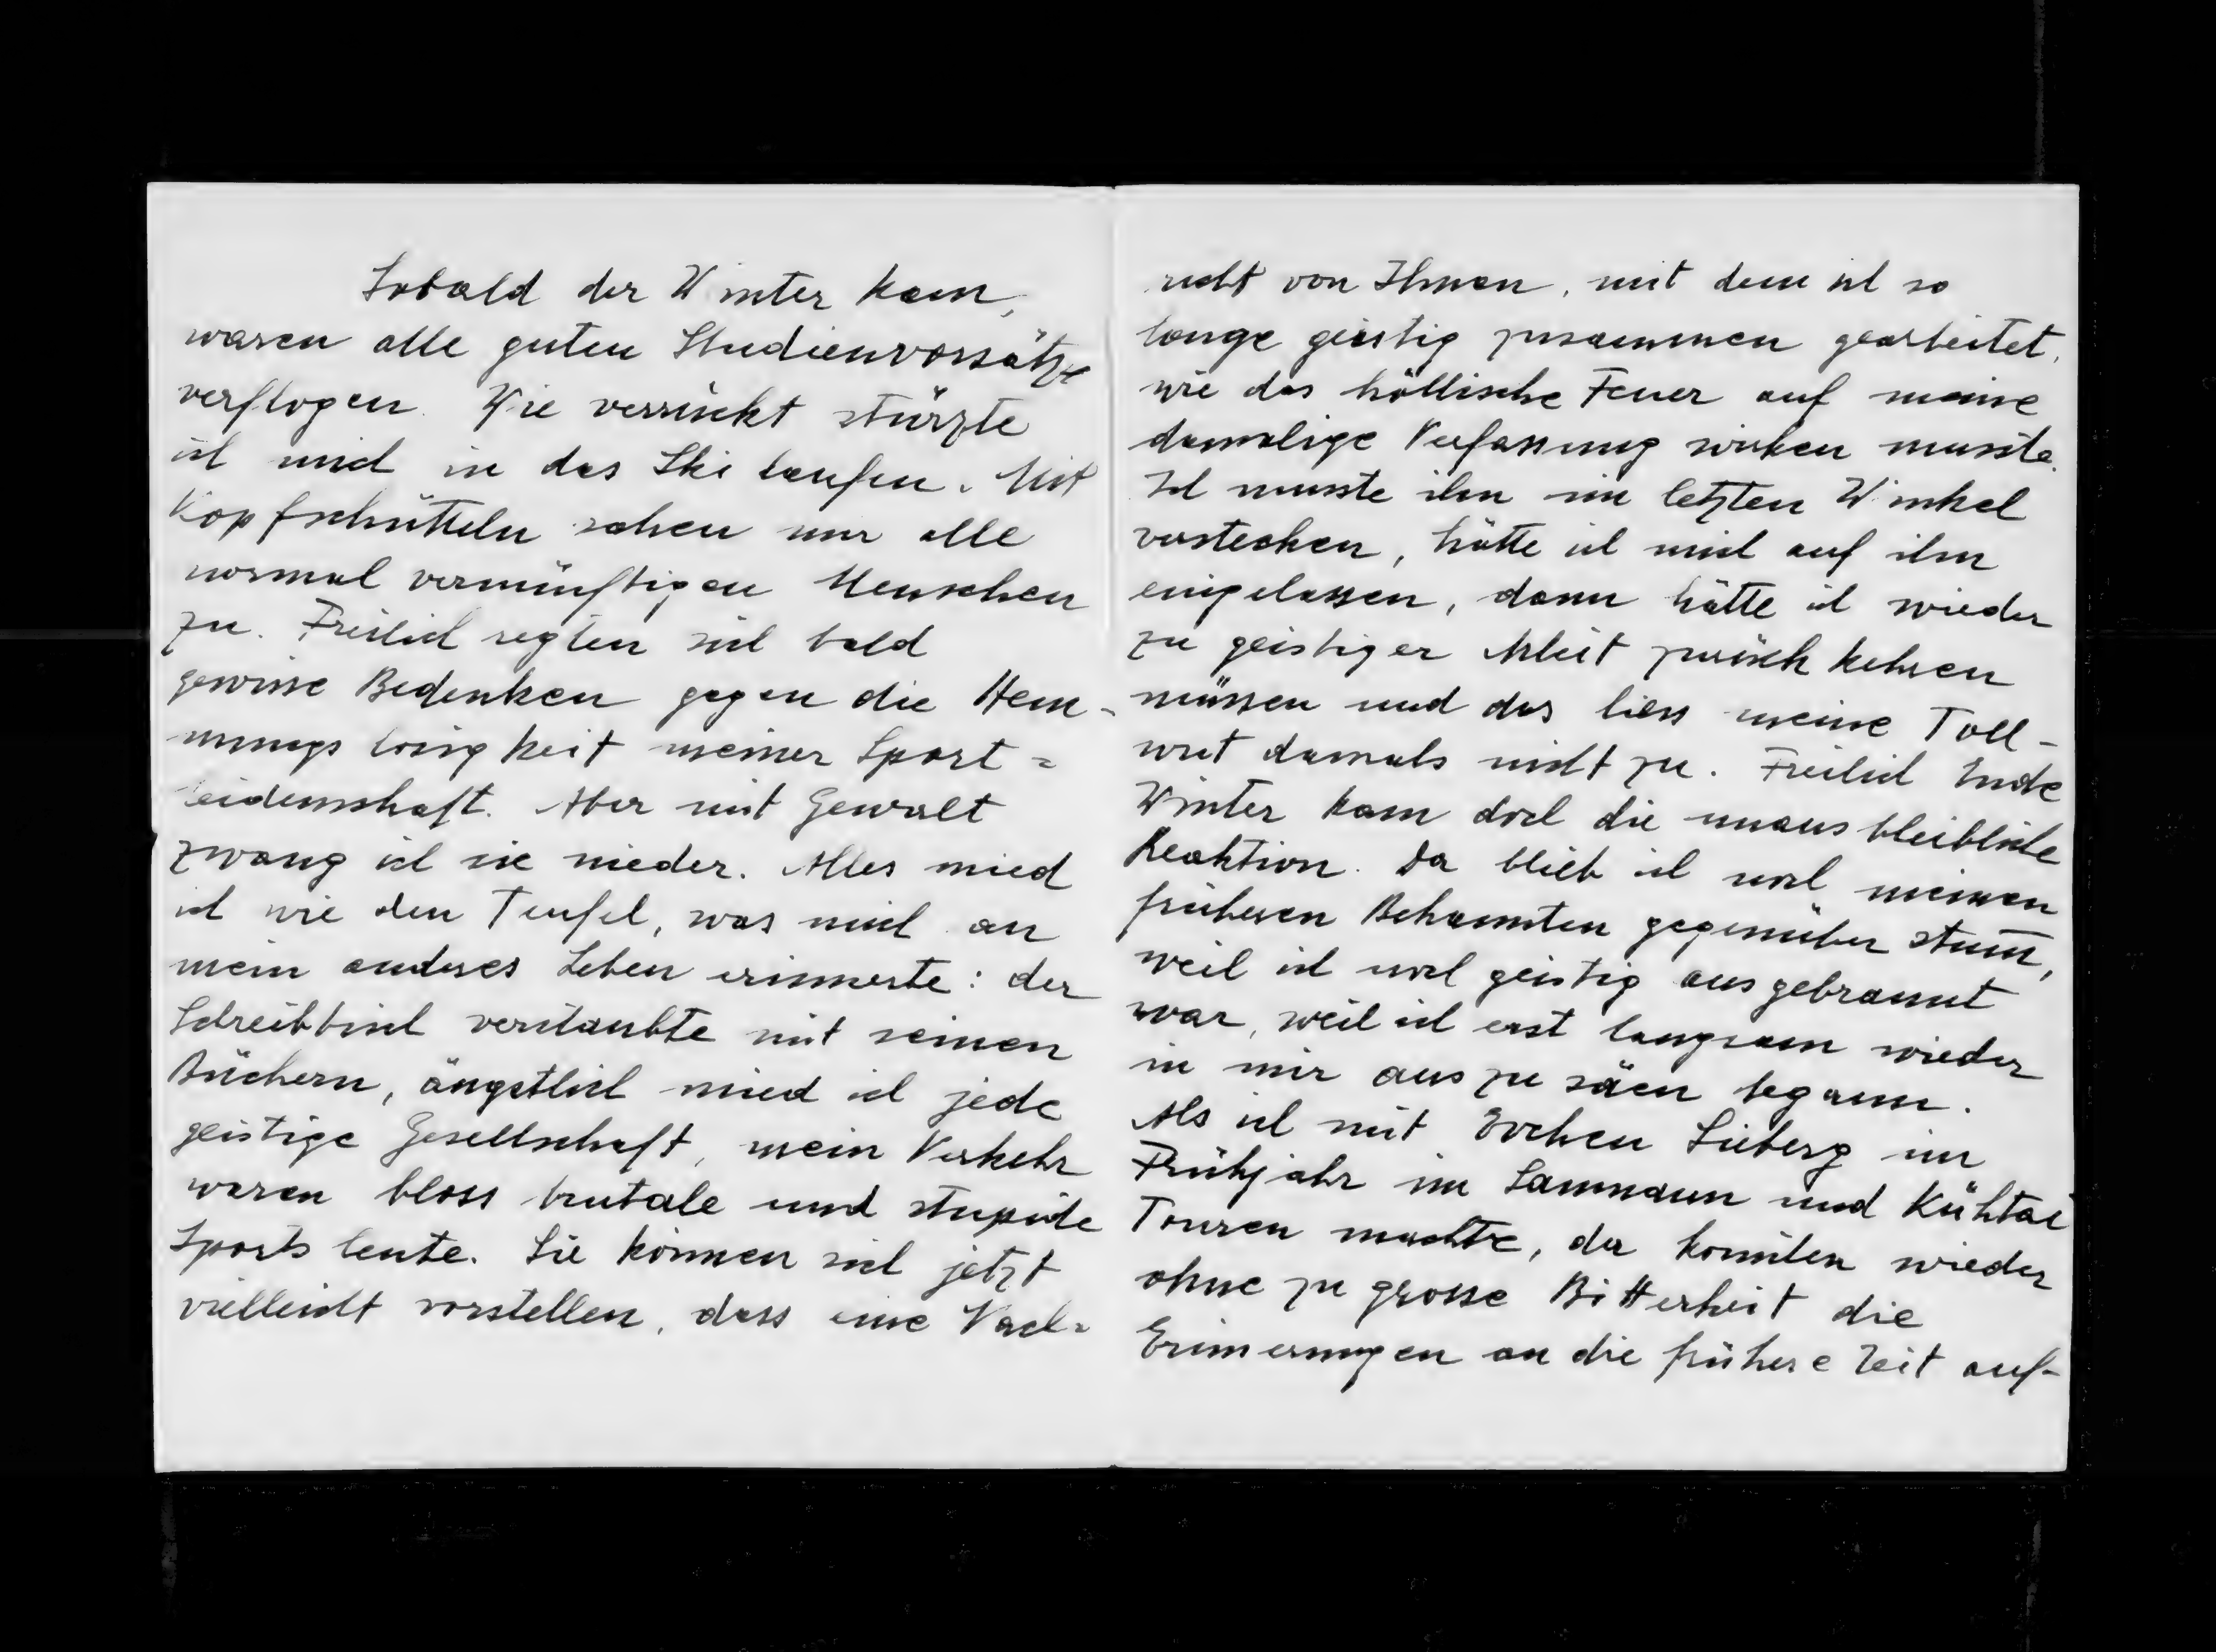 Sobald der Winter kam,
waren alle guten Studienvorsätze
verflogen. Wie verrückt stürzte
ich mich in das Ski laufen. Mit
Kopfschütteln sahen mir alle
normal vernünftigen Menschen
zu. Freilich regten sich bald
gewisse Bedenken gegen die Hem-
mungslosigkeit meiner Sport=
leidenschaft. Aber mit Gewalt
zwang ich sie nieder. Alles mied
ich wie den Teufel, was mich an
mein anderes Leben erinnerte: der
Schreibtisch verstaubte mit seinen
Büchern, ängstlich mied ich jede
geistige Gesellschaft, mein Verkehr
waren bloss brutale und stupide
Sportsleute. Sie können sich jetzt
vielleicht vorstellen, dass eine Nach=
richt von Ihnen, mit dem ich so
lange geistig zusammen gearbeitet,
wie das höllische Feuer auf meine
damalige Verfassung wirken musste.
Ich musste ihn im letzten Winkel
verstecken, hätte ich mich auf ihn
eingelassen, dann hätte ich wieder
zu geistiger Arbeit zurück kehren
müssen und das liess meine Toll-
wut damals nicht zu. Freilich Ende
Winter kam doch die unausbleibliche
Reaktion. Da blieb ich noch meinen
früheren Bekannten gegenüber stum̅,
weil ich noch geistig ausgebrannt
war, weil ich erst langsam wieder
in mir aus zu säen begann.
Als ich mit Evchen Sieberg im
Frühjahr im Samnaun und Kühtai
Touren machte, da konnten wieder
ohne zu grosse Bitterkeit die
Erinnerungen an die frühere Zeit auf-